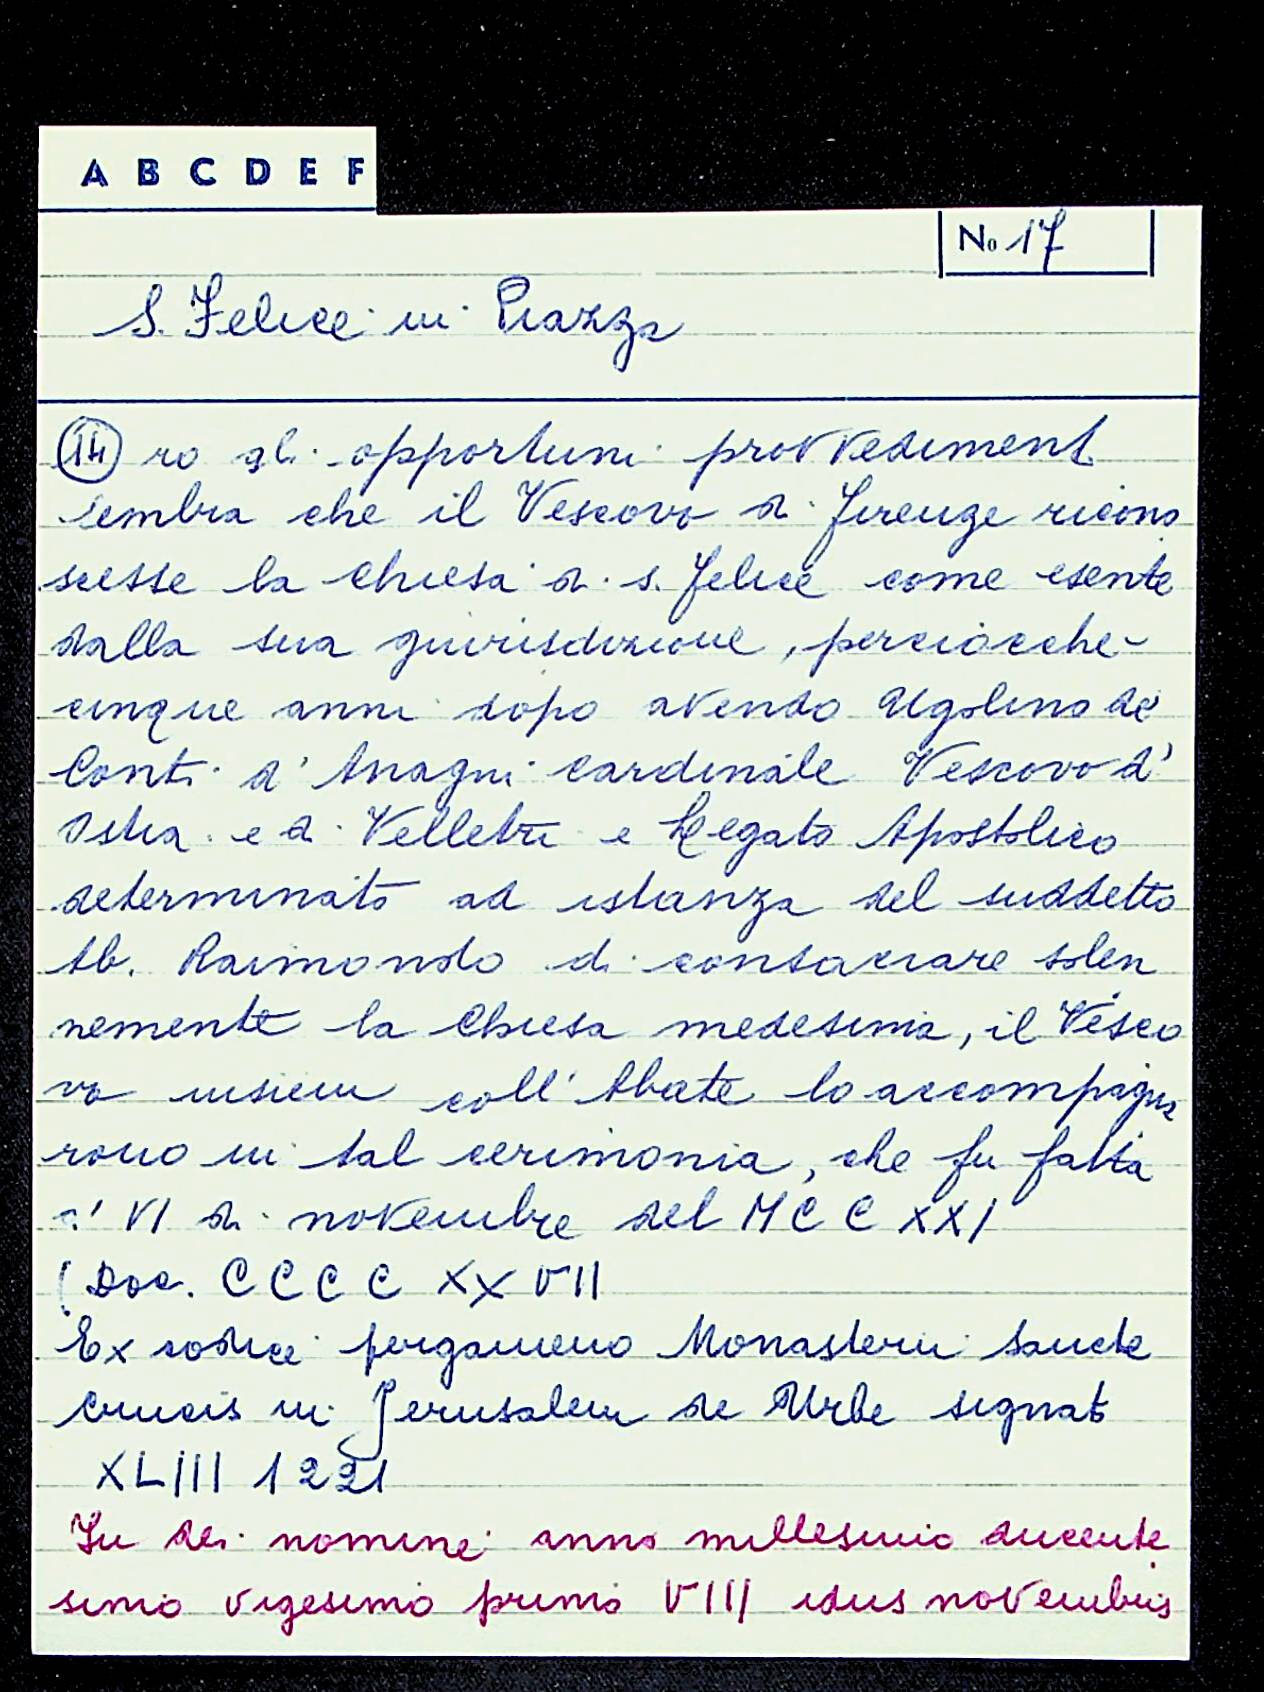 A B C D E F
No 17
S. Felice in Piazza
14 ro gli opportuni provvediment
sembra che il Vescovo di Firenze ricono
scesse la chiesa di S. Felice come esente
dalla sua giurisdizione, perciocche
cinque anni dopo avendo Ugolino de'
Conti d'Anagni cardinale Vescovo d'
Ostia e di Velletri e Legato Apostolico
determinato ad istanza del suddetto
Ab. Raimondo di consacrare solen
nemente la Chiesa medesima, il Vesco
vo insiem coll'Abate lo accompagna
rono in tal cerimonia, che fu fatta
a' VI di novembre del MCCXXI
(Doc. CCCCXXVII
Ex codice pergameno Monasterii Sancte
Crucis in Jerusalem de Urbe signat
XLIII 1221
In dei nomine anno millesimo ducente
simo vigesimo primo VIII idus novembris